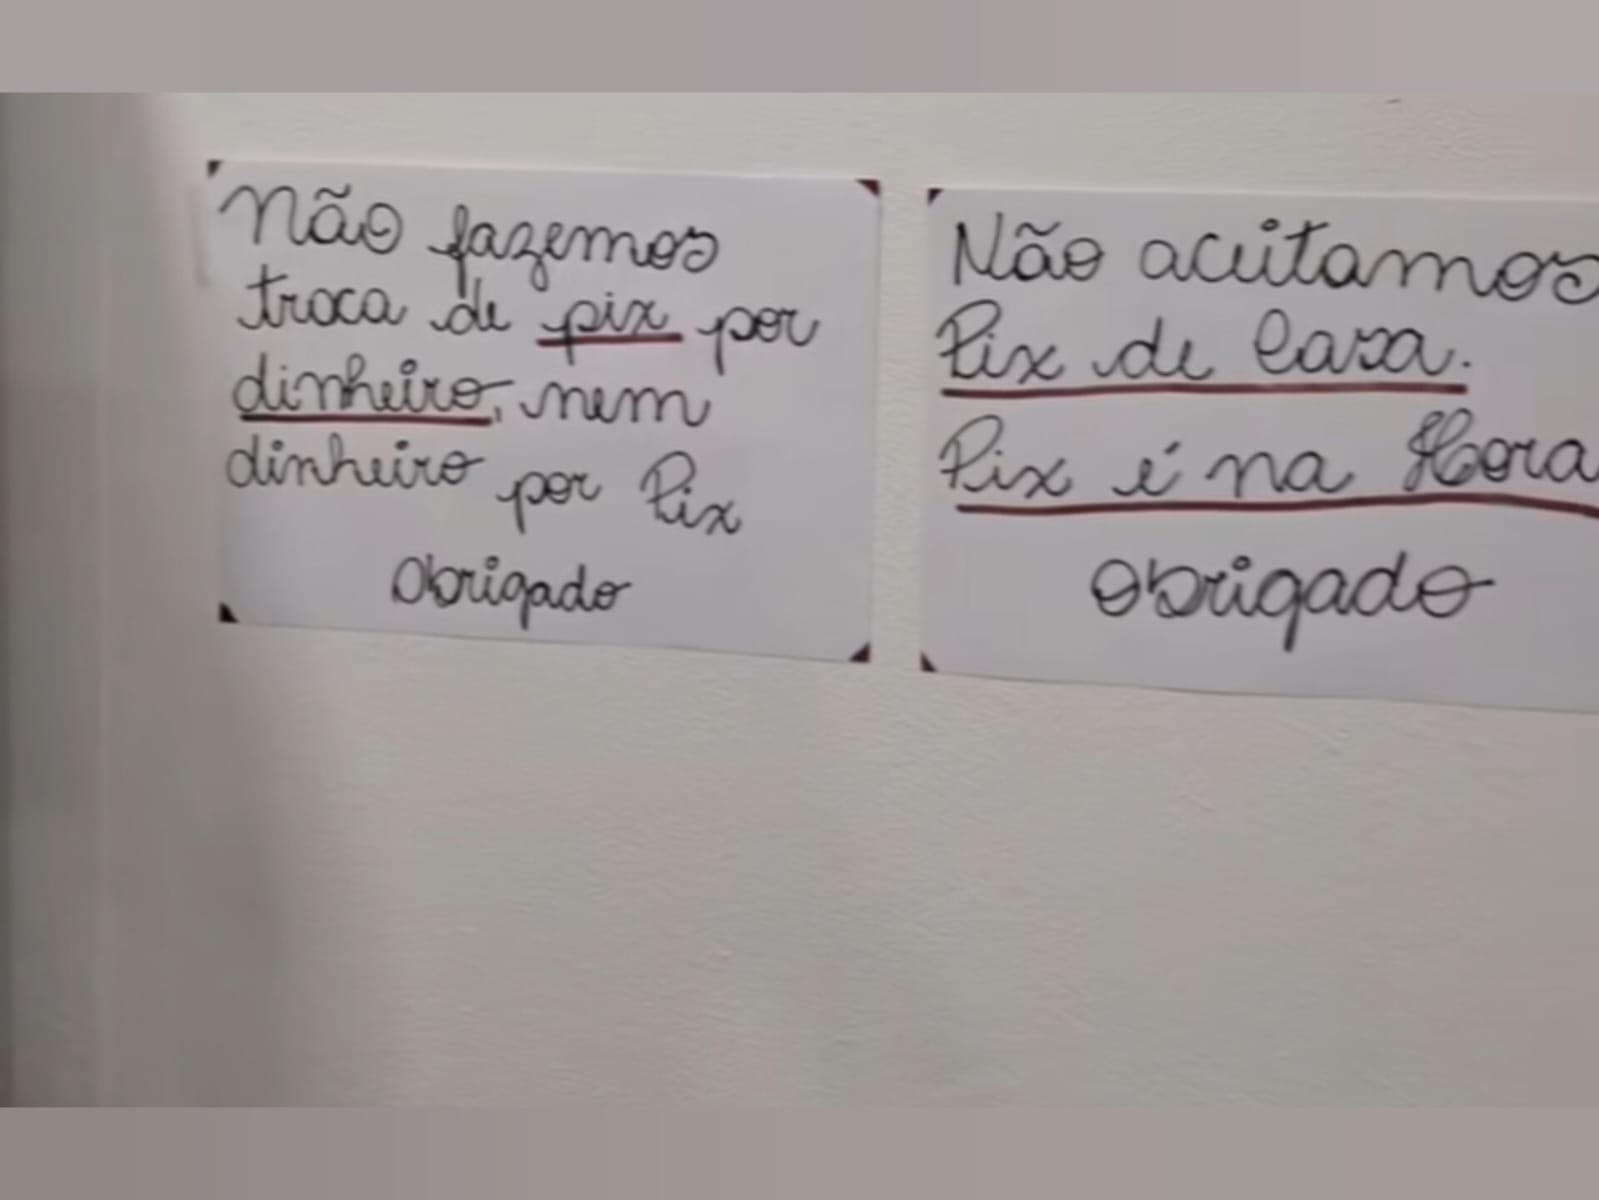 Não fazemos
troca de pix por
dinheiro, nem
dinheiro por Pix
Obrigado
Não aceitamos
Pix de Casa.
Pix é na Hora
Obrigado